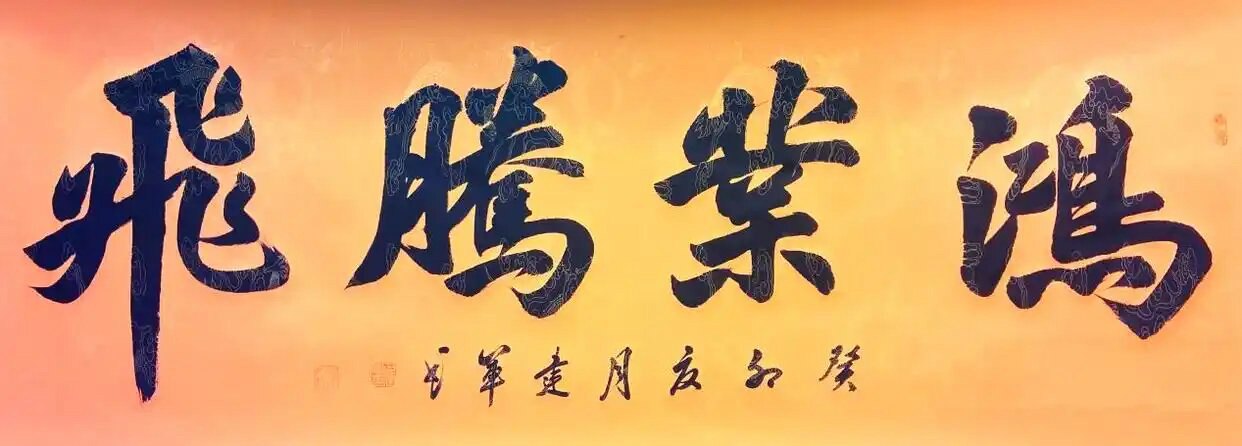 鴻業騰飛
癸卯友月建軍書